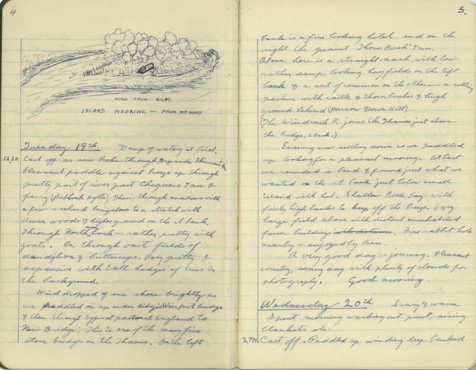 4
WIND FROM
ISLAND MOORING - FROM
Tuesday 19th Damp & watery at first.
12.30 Cast off as sun broke through
Pleasant paddle against breeze up through
pretty part of river past Chequers Inn &
ferry Then through meadows with
a few on left to a stretch with
dense woods & high ground on the left bank
Through Northmoor - rather pretty with
goats. On through vast fields of
dandelions & buttercups. Very pretty &
expansive with tall hedges of trees in
the background.
Wind dropped & sun shone brightly as
we paddled on up under foot bridge
& then through typical pastoral England to
New Bridge. This is one of the many fine
stone bridges on the Thames. On the left
5.
bank is a fine looking hotel and on the
right the quaint Inn.
Above here is a straight reach with low
rather damp looking hayfields on the left
bank & a sort of common on the other
pasture with cattle & thorn bushes & high
ground behind
(The Windrush R. joins the Thames just above
the bridge,
Evening was settling down as we paddled
up looking for a pleasant mooring. At last
we rounded a bend & found just what we
wanted on the left bank just below small
island with hut. Shallow little bay with
fairly high banks to keep off the breeze. Very
large field above with violent uninhabited
farm buildings Five rabbit hole
nearby enjoyed by Fran.
A very good day's journey. Pleasant
country, sunny day with plenty of clouds for
photography. Good mooring.
Wednesday 20th Sunny & warm.
Spent morning washing out punt, airing
blankets etc.
2 PM Cast off. Paddled up winding deep banked